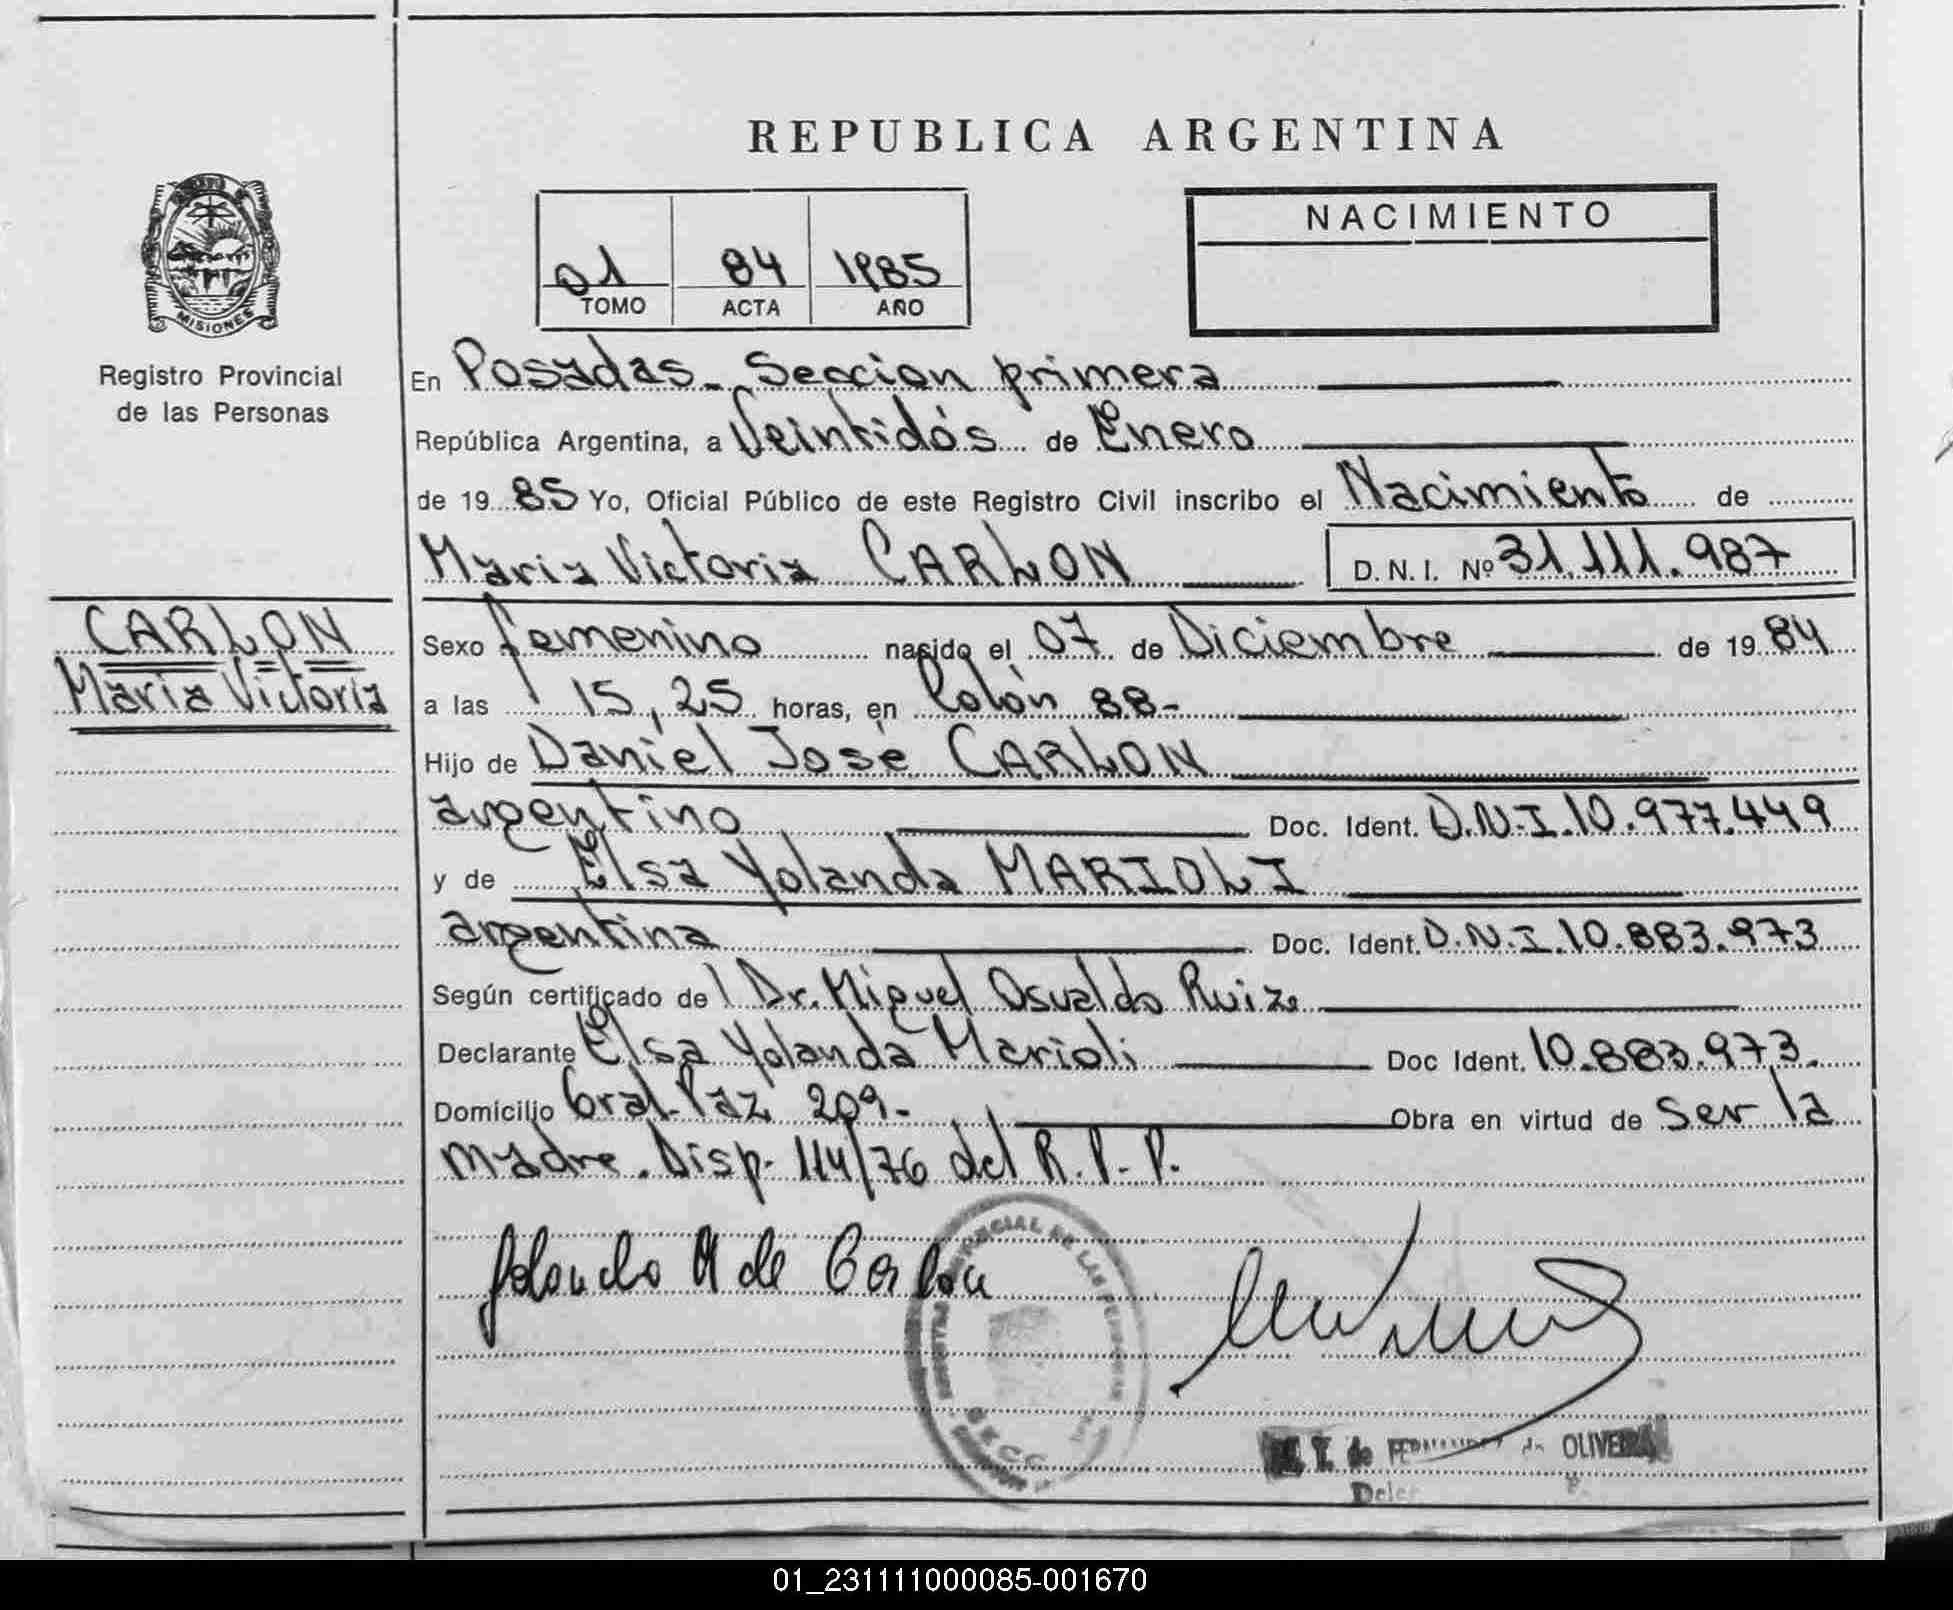 REPUBLICA ARGENTINA
NACIMIENTO
01 84 1985
TOMO ACTA AÑO
MISIONES
Registro Provincial
de las Personas
En Posadas - Seccion primera
República Argentina, a Veintidós de Enero
de 19 85 Yo, Oficial Público de este Registro Civil inscribo el Nacimiento de
Maria Victoria CARLON D.N.I. Nº 31.111.987
CARLON
Maria Victoria
Sexo femenino nacido el 07 de Diciembre de 19 84
a las 15,25 horas, en Colón 88-
Hijo de Daniel José CARLON
argentino Doc. Ident. D.N.I. 10.977.449
y de Elsa Yolanda MARIOLI
argentina Doc. Ident. D.N.I. 10.883.973
Según certificado de l Dr. Miguel Osvaldo Ruiz
Declarante Elsa Yolanda Marioli Doc Ident. 10.883.973.
Domicilio Gral. Paz 209- Obra en virtud de ser la
madre. Disp. 114/76 del R.P.P.
Yolanda M de Carlon
DE LAS PERSONAS
SECC
M. T. de FERNANDEZ de OLIVEIRA
01_231111000085-001670